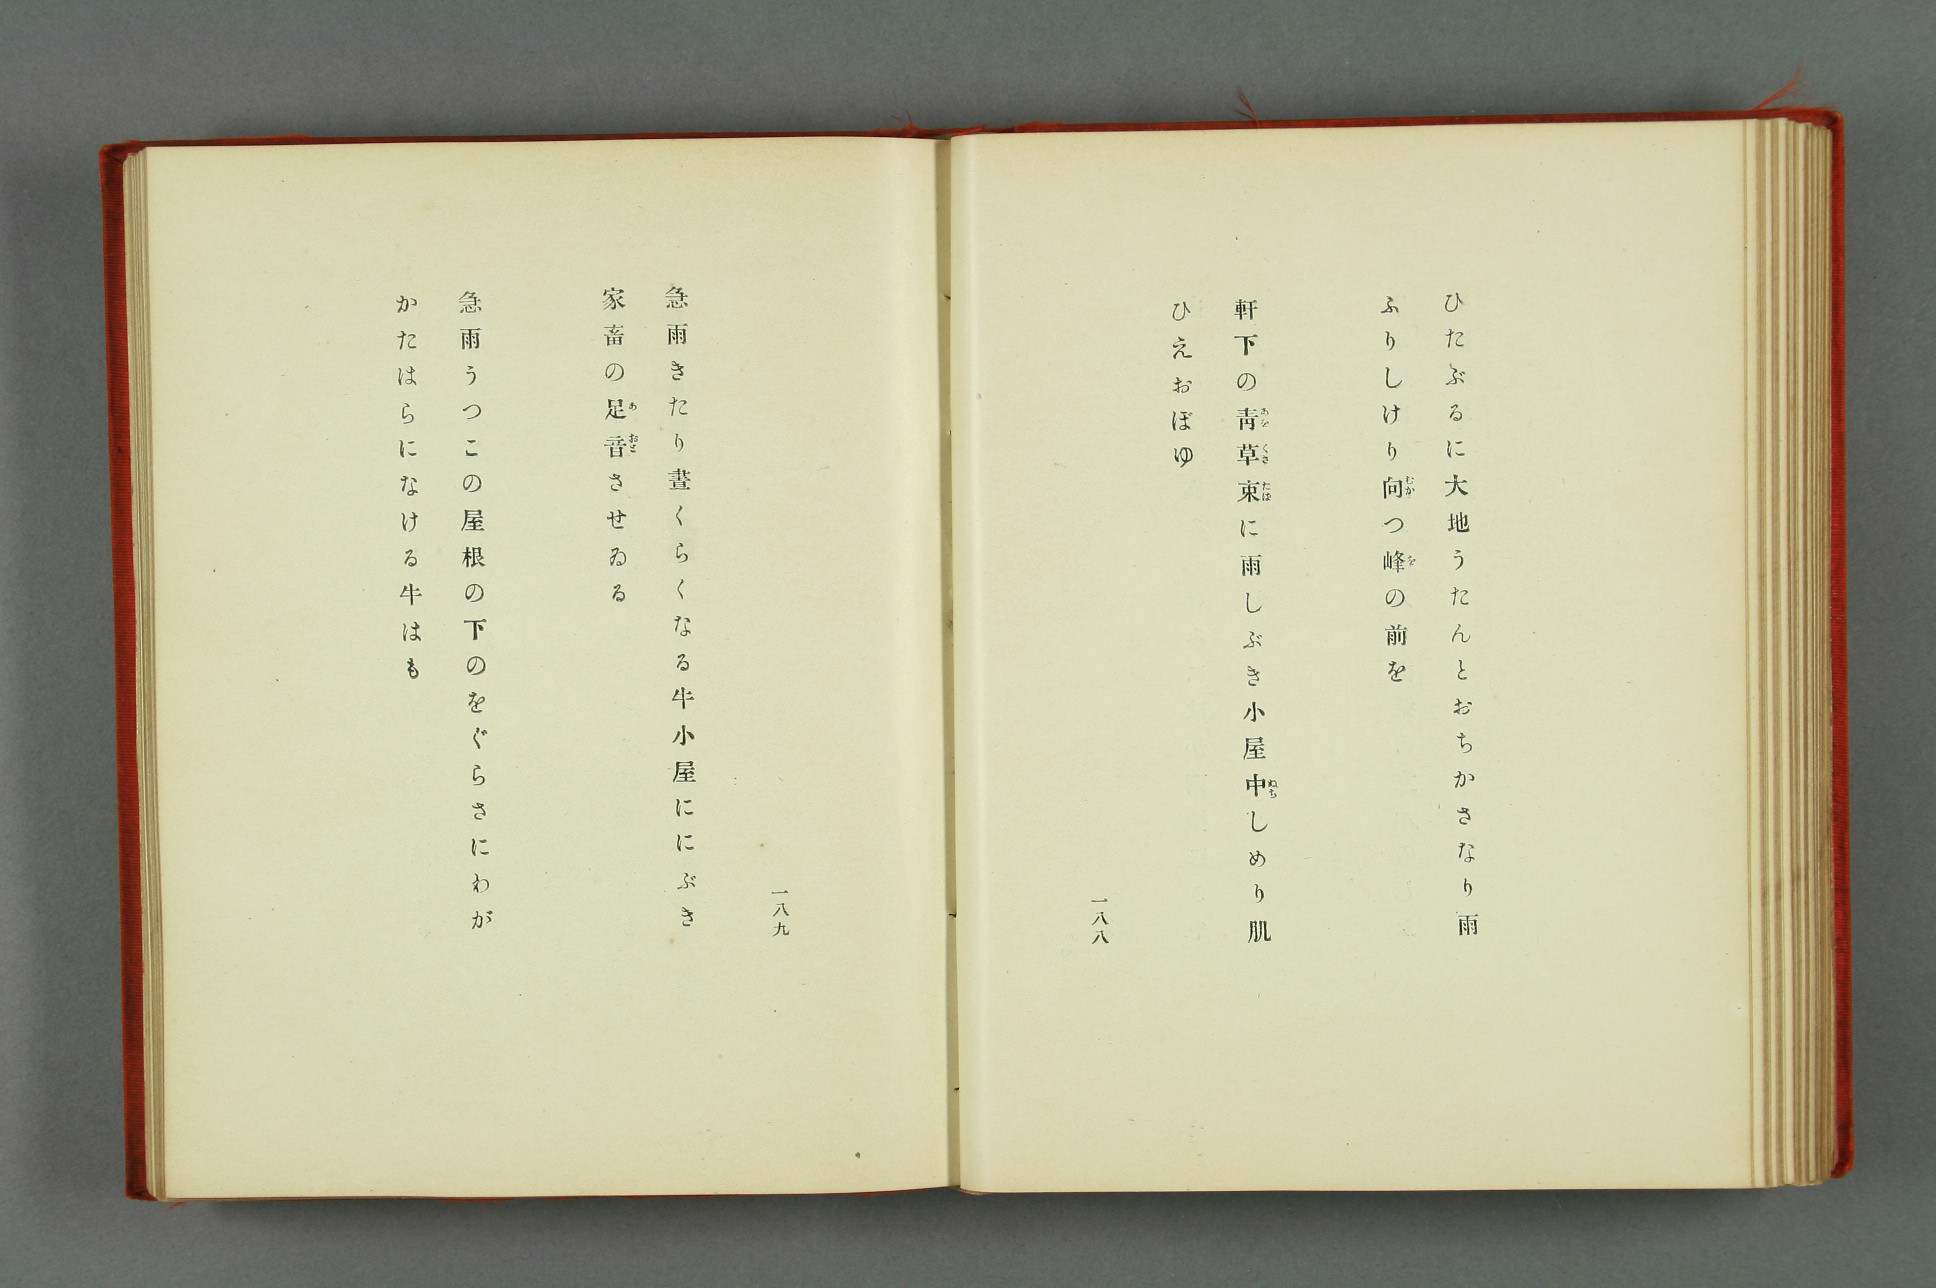 ひたぶるに大地うたんとおちかさなり雨
ふりしけり向つ峰の前を
軒下の靑草束に雨しぶき小屋中しめり肌
ひえおぼゆ
一八八
急雨きたり晝くらくなる牛小屋ににぶき
家畜の足音させゐる
急雨うつこの屋根の下のをぐらさにわが
かたはらになける牛はも
一八九